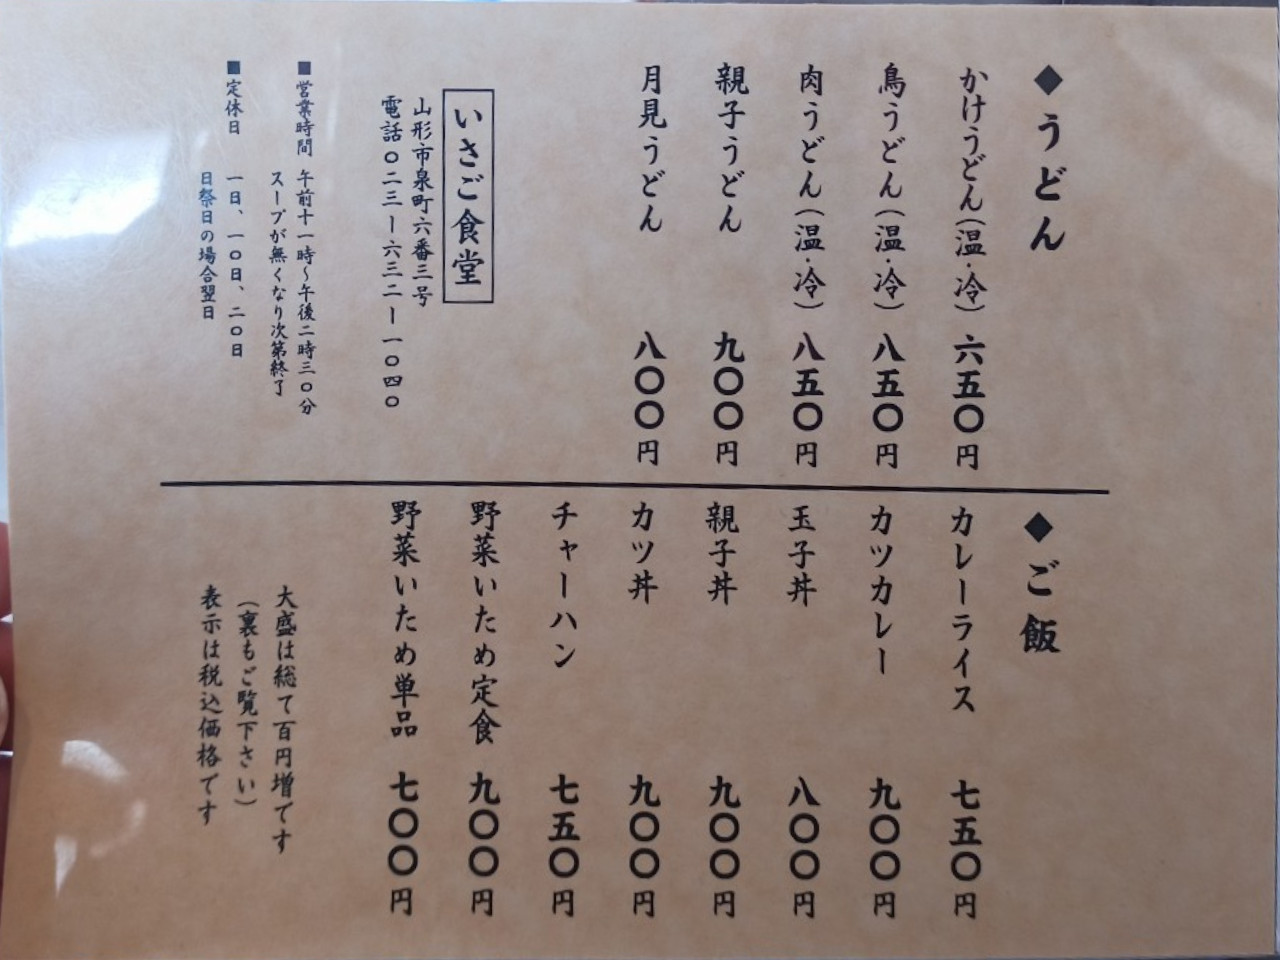 ◆うどん
かけうどん（温・冷） 六五〇円
鳥うどん（温・冷） 八五〇円
肉うどん（温・冷） 八五〇円
親子うどん 九〇〇円
月見うどん 八〇〇円
いさご食堂
山形市泉町六番三号
電話〇二三ー六三二ー一〇四〇
■営業時間 午前十一時～午後二時三〇分
スープが無くなり次第終了
■定休日 一日、一〇日、二〇日
日祭日の場合翌日
◆ご飯
カレーライス 七五〇円
カツカレー 九〇〇円
玉子丼 八〇〇円
親子丼 九〇〇円
カツ丼 九〇〇円
チャーハン 七五〇円
野菜いため定食 九〇〇円
野菜いため単品 七〇〇円
大盛は総て百円増です
（裏もご覧下さい）
表示は税込価格です